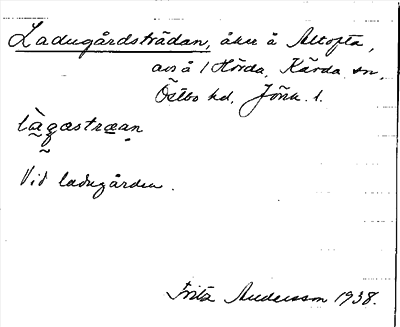 Ladugårdsträdan, åker å Altofta,
avs å 1 Hörda, Kärda sn,
Östbo hd, Jönk. l.
Vid ladugården.
Fritz Andersson 1938.